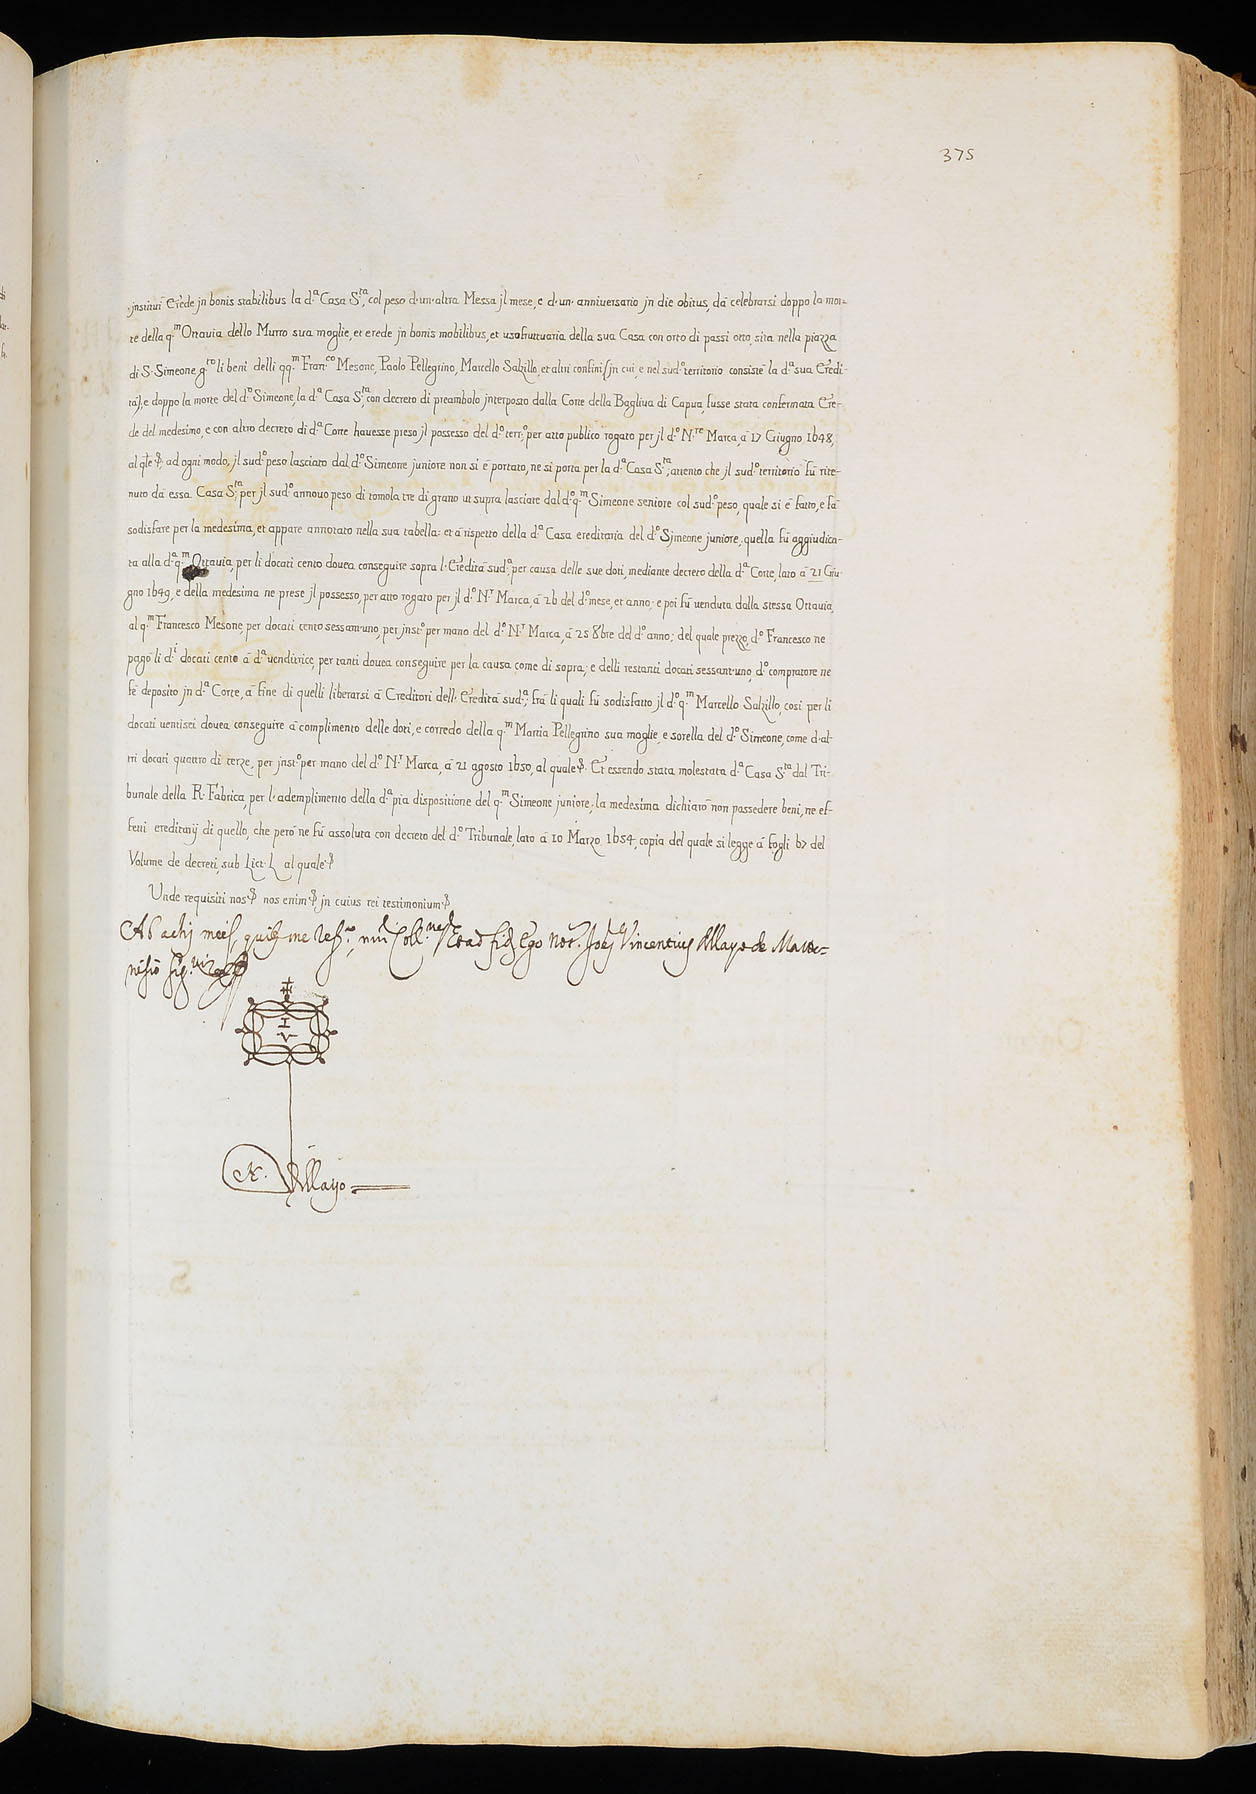 375
instituì Erede jn bonis stabilibus la d.ª Casa S.ta, col peso d'un'altra Messa jl mese, e d'un' anniversario jn die obitus, dà celebrarsi doppo la mor-
te della q.m Ottavia dello Murro sua moglie, et erede jn bonis mobilibus, et usofruttuaria della sua Casa con orto di passi otto, sita nella piazza
di S. Simeone g.to li beni delli qq.m Fran.co Mesone, Paolo Pellegrino, Marcello Salzillo, et altri confini (jn cui, e nel sud.º territorio consiste la d.ª sua Eredi-
tà), e doppo la morte del d.º Simeone, la d.ª Casa S.ta, con decreto di preambolo jnterposto dalla Corte della Bagliva di Capua, fusse stata confermata Ere-
de del medesimo, e con altro decreto di d.ª Corte havesse preso jl possesso del d.º terr.º, per atto publico rogato per jl d.º N.re Marca, à 17 Giugno 1648,
al qle &; ad ogni modo, jl sud.º peso lasciato dal d.º Simeone juniore non si è portato, ne si porta per la d.ª Casa S.ta, attento che jl sud.º territorio fù rite-
nuto dà essa Casa S.ta, per jl sud.º annouo peso di tomola tre di grano ut supra lasciate dal d.º q.m Simeone seniore col sud.º peso, quale si è fatto, e fà
sodisfare per la medesima, et appare annotato nella sua tabella: et à rispetto della d.ª Casa ereditaria del d.º Sjmeone juniore, quella fù aggiudica-
ta alla d.ª q.m Ottavia, per li docati cento douea conseguire sopra l'Eredità sud.ª, per causa delle sue doti, mediante decreto della d.ª Corte, lato à 21 Giu-
gno 1649, e della medesima ne prese jl possesso, per atto rogato per jl d.º N.r Marca, à 26 del d.º mese, et anno; e poi fù venduta dalla stessa Ottavia,
al q.m Francesco Mesone, per docati cento sessant'uno, per jnst.º per mano del d.º N.r Marca, à 25 8bre del d.º anno; del quale prezzo, d.º Francesco ne
pagò li d.i docati cento à d.ª venditrice, per tanti douea conseguire per la causa come di sopra; e delli restanti docati sessant'uno, d.º compratore ne
fè deposito jn d.ª Corte, à fine di quelli liberarsi à Creditori dell'Eredità sud.ª; frà li quali fù sodisfatto jl d.º q.m Marcello Salzillo, così per li
docati uentisei douea conseguire à complimento delle doti, e corredo della q.m Martia Pellegrino sua moglie, e sorella del d.º Simeone, come d'al-
tri docati quattro di terze, per jnst.º per mano del d.º N.r Marca, à 21 agosto 1650, al quale &. Et essendo stata molestata d.ª Casa S.ta dal Tri-
bunale della R. Fabrica, per l'ademplimento della d.ª pia dispositione del q.m Simeone juniore; la medesima dichiarò non possedere beni, ne ef-
fetti ereditarij di quello, che però ne fù assoluta con decreto del d.º Tribunale, lato à 10 Marzo 1654, copia del quale si legge à fogli 67 del
Volume de decreti, sub Lict. L al quale &
Unde requisiti nos & nos enim & jn cuius rei testimonium &
Ab actis meis, Coll.ne Et ad fidem Ego Not. Joes Vincentius dellayo de Matte-
nisio
I
V
N. dellayo